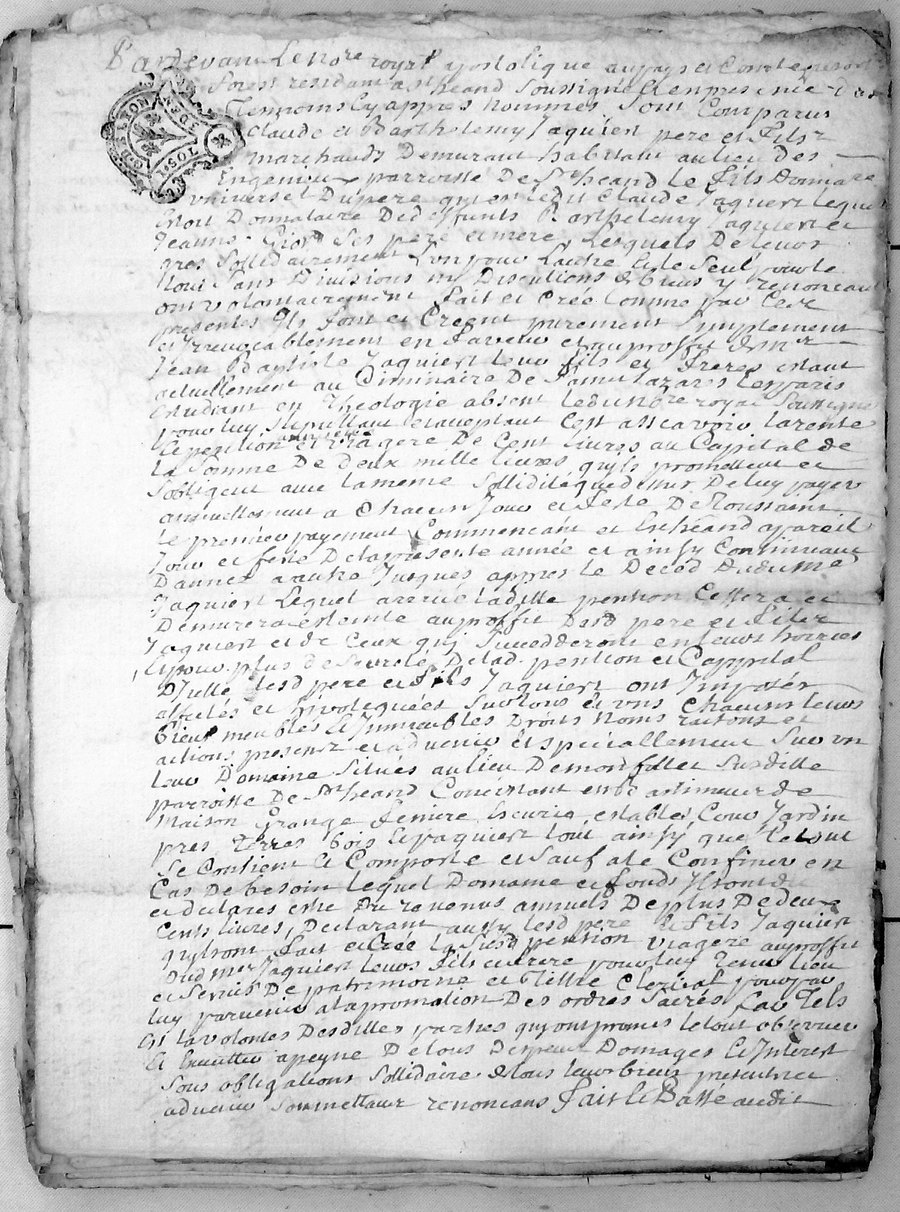 Pardevant Le no.re royal apostolique au pays et Comté
forest residant a st heand soussigné et en presence des
Temoins cy appres nommés sont Comparus
Claude et Barthelemy Jaquier pere et fils
marchands Demurant habitant au lieu des
parroisse De st heand le fils donnataire
universel Du pere quy est ledit Claude Jaquier lequel
Donnataire De deffunts Barthelemy Jaquier et
Jeanne ses pere et mere Lesquels De leurs
gres sollidairement L'un pour L'autre et le seul pour le
tout sans Divisions ny Discutions y renoncant
ont volontairement fait et Créé Comme par Ces
presentes Ils font et Creent purement simplement
et Irrevocablement en faveur et au proffit de mr
Jean Baptiste Jaquier leur fils et frere estant
actuellement au Ceminaire De saint Lazare Les paris
Estudiant en Theologie absent ledit no.re royal soussigné
pour luy stipullant et acceptant C'est asscavoir la rente
et pention annuelle et viagere De Cent livres au Capital de
la somme De deux mille livres quils promettent et
s'obligent avec la meme sollidité que dessus De luy payer
annuellement a Chacun Jour et feste De Toussaint
le premier payement Commencant et Escheand a pareil
Jour et feste De la presente année et ainsy Continuant
D'année a autre Jusques appres le Deced dudit me
Jaquier Lequel arrivé laditte pention Cessera et
Demurera estainte au proffit desd pere et fils
Jaquier et de Ceux quy succedderont en leurs hoiries
et pour plus de seureté De lad. pention et Cappital
D'Icelle lesd pere et fils Jaquier ont Imposés
affectés et hipotequées sur tous et uns Chacuns leurs
bieus meubles et Immeubles Droits noms raisons et
actions presents et advenir et speciallement sur un
leur Domaine situés au lieu De montfollet susditte
parroisse De st heand Concistant en bastiment de
maison Grange feniere Escurie estables Cour Jardin
pres Terres bois et paquier tout ainsy que le tout
se Contient et Comporte et sauf a le Confiner en
Cas De besoin lequel Domaine et fonds Ils ont dit
et declarés estre Du revenus annuels De plus De deux
Cents livres, Declarant aussy lesd pere et fils Jaquier
quils ont fait et Créé la susd pention viagere au proffit
dud mre Jaquier leurs fils et frere pour luy Tenir lieu
et servir De patrimoine et Tiltre Clerical pour
luy parvenir a la promotion Des ordres sacrés Car Tels
Est la volontés Desdittes parties quy ont promis le tout observer
et Executter a peyne De tous Despens Domages et Interest
sous obligations sollidaire de tous leurs bieus presents et
advenir sommettant renoncans fait et Passé audit